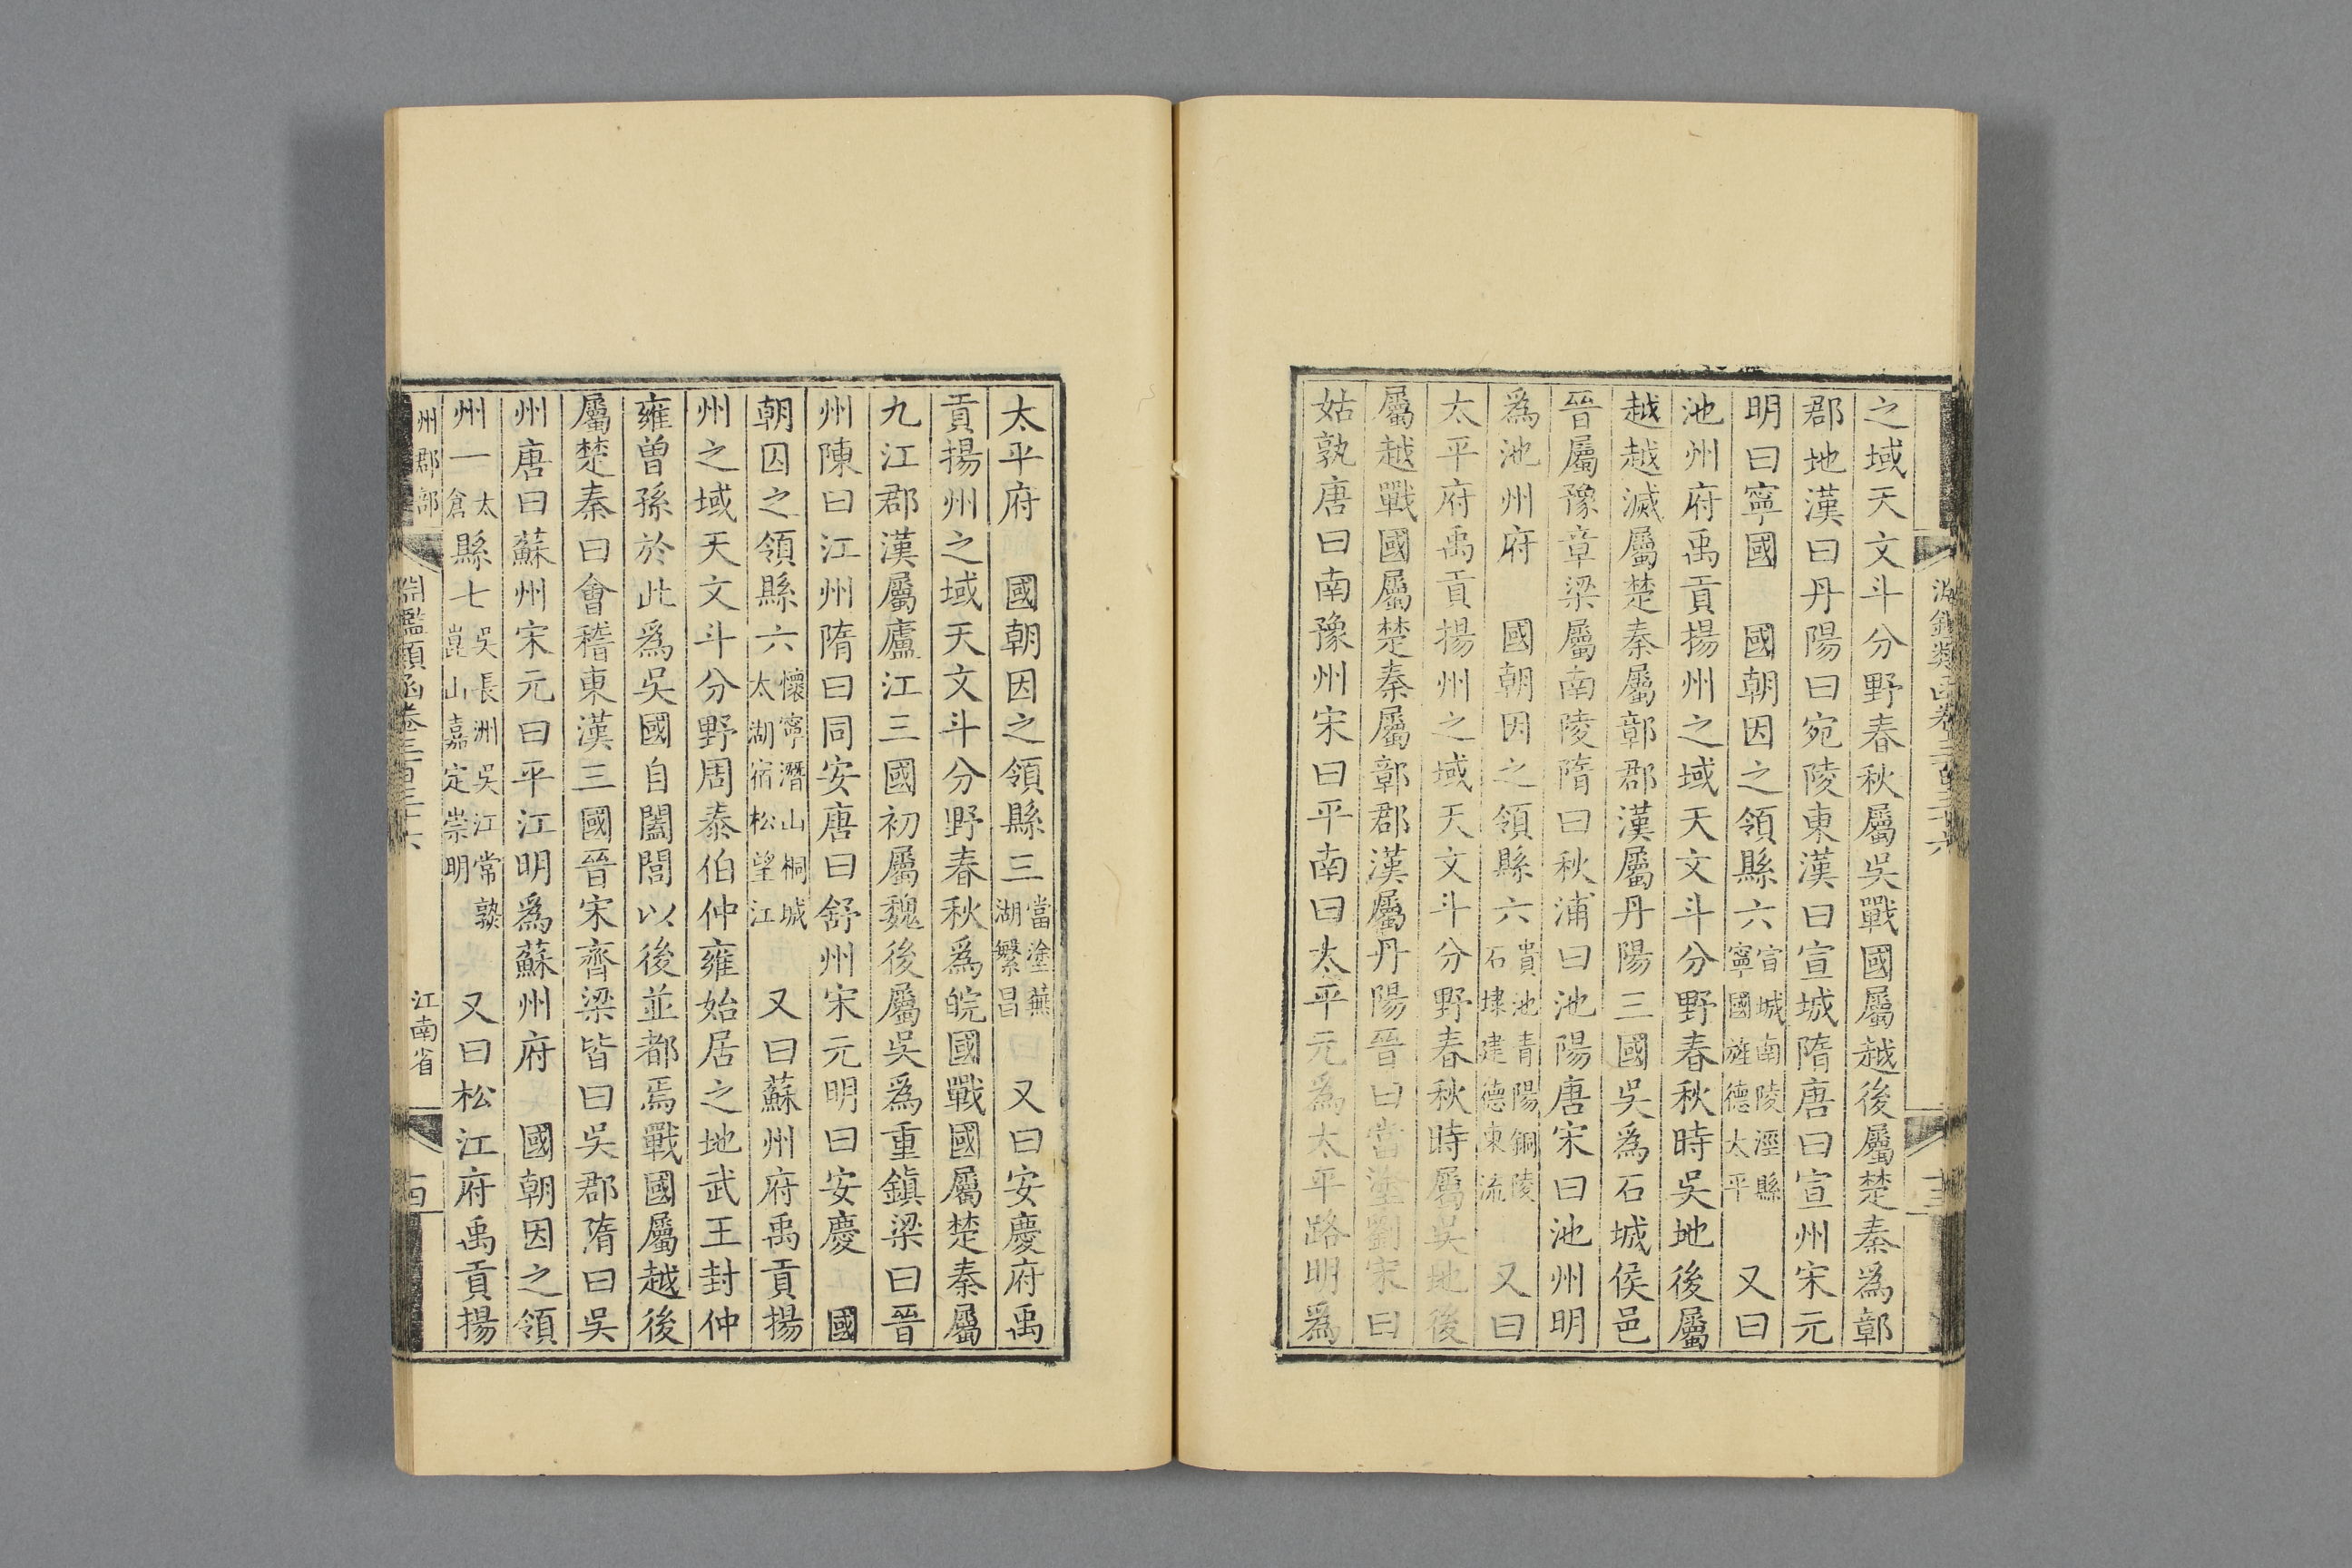 之域天文斗分野春秋屬吳戰國屬越後屬楚秦爲鄣
郡地漢曰丹陽曰宛陵東漢曰宣城隋唐曰宣州宋元
明曰寧國　國朝因之領縣六宣城南陵涇縣寧國旌德太平　又曰
池州府禹貢揚州之域天文斗分野春秋時吳地後屬
越越滅屬楚秦屬鄣郡漢屬丹陽三國吳爲石城侯邑
晉屬豫章梁屬南陵隋曰秋浦曰池陽唐宋曰池州明
爲池州府　國朝因之領縣六貴池青陽銅陵石埭建德東流　又曰
太平府禹貢揚州之域天文斗分野春秋時屬吳地後
屬越戰國屬楚秦屬鄣郡漢屬丹陽晉曰當塗劉宋曰
姑孰唐曰南豫州宋曰平南曰太平元爲太平路明爲
太平府　國朝因之領縣三當塗蕪湖繁昌　又曰安慶府禹
貢揚州之域天文斗分野春秋爲皖國戰國屬楚秦屬
九江郡漢屬廬江三國初屬魏後屬吳爲重鎮梁曰晉
州陳曰江州隋曰同安唐曰舒州宋元明曰安慶　國
朝因之領縣六懷寧潛山桐城太湖宿松望江　又曰蘇州府禹貢揚
州之域天文斗分野周泰伯仲雍始居之地武王封仲
雍曾孫於此爲吳國自闔閭以後並都焉戰國屬越後
屬楚秦曰會稽東漢三國晉宋齊梁皆曰吳郡隋曰吳
州唐曰蘇州宋元曰平江明爲蘇州府　國朝因之領
州一太倉縣七吳長洲吳江常熟崑山嘉定崇明　又曰松江府禹貢揚
州郡部
淵鑑類函卷三百三十六
江南省